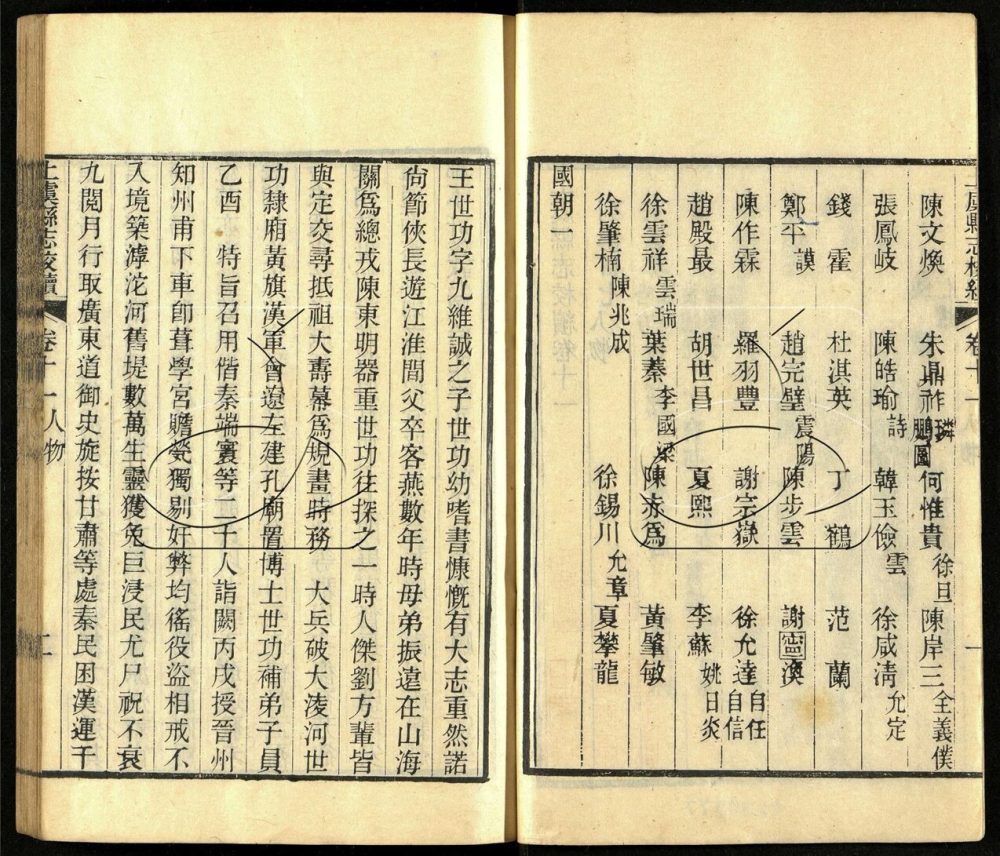 上虞縣志校續 卷十一 人物 一
陳文煥 朱鼎祚 璘 鵬圖 何惟貴 徐旦 陳岸三 全義僕
張鳳岐 陳皓瑜 詩 韓玉儉 雲 徐咸清 允定
錢霍 杜淇英 丁鶴 范蘭
鄭平 謨 趙完璧 震陽 陳步雲 謝寍澳
陳作霖 羅羽豐 謝宗嶽 徐允達 自任 自信
趙殿最 胡世昌 夏熙 李蘇 姚日炎
徐雲祥 雲瑞 葉蓁 李國梁 陳赤為 黃肇敏
徐肇楠 陳兆成 徐錫川 允章 夏攀龍
國朝一
王世功字九維誠之子世功幼嗜書慷慨有大志重然諾
尙節俠長遊江淮間父卒客燕數年時母弟振遠在山海
關爲總戎陳東明器重世功往探之一時人傑劉方輩皆
與定交尋抵祖大壽幕爲規畫時務 大兵破大凌河世
功隸廂黃旗漢軍會遼左建孔廟置博士世功補弟子員
乙酉 特旨召用偕秦端寰等二千人詣闕丙戌授晉州
知州甫下車卽葺學宮贍煢獨剔奸弊均徭役盜相戒不
入境築滹沱河舊堤數萬生靈獲免巨浸民尤尸祝不衰
九閱月行取廣東道御史旋按甘肅等處秦民困漢運千
上虞縣志校續 卷十一 人物 二